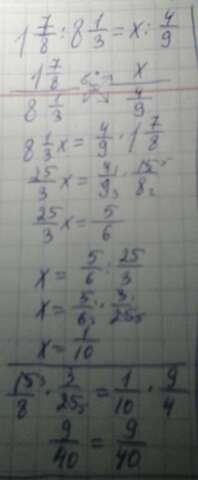 1 7/8 : 8 1/3 = x : 4/9
(1 7/8)/(8 1/3) = x/(4/9)
8 1/3 x = 4/9 · 1 7/8
25/3 x = 4/9 3 · 15 5/8 2
25/3 x = 5/6
x = 5/6 : 25/3
x = 5/6 2 · 3/25 5
x = 1/10
15/8 · 3/25 5 = 1/10 · 9/4
9/40 = 9/40